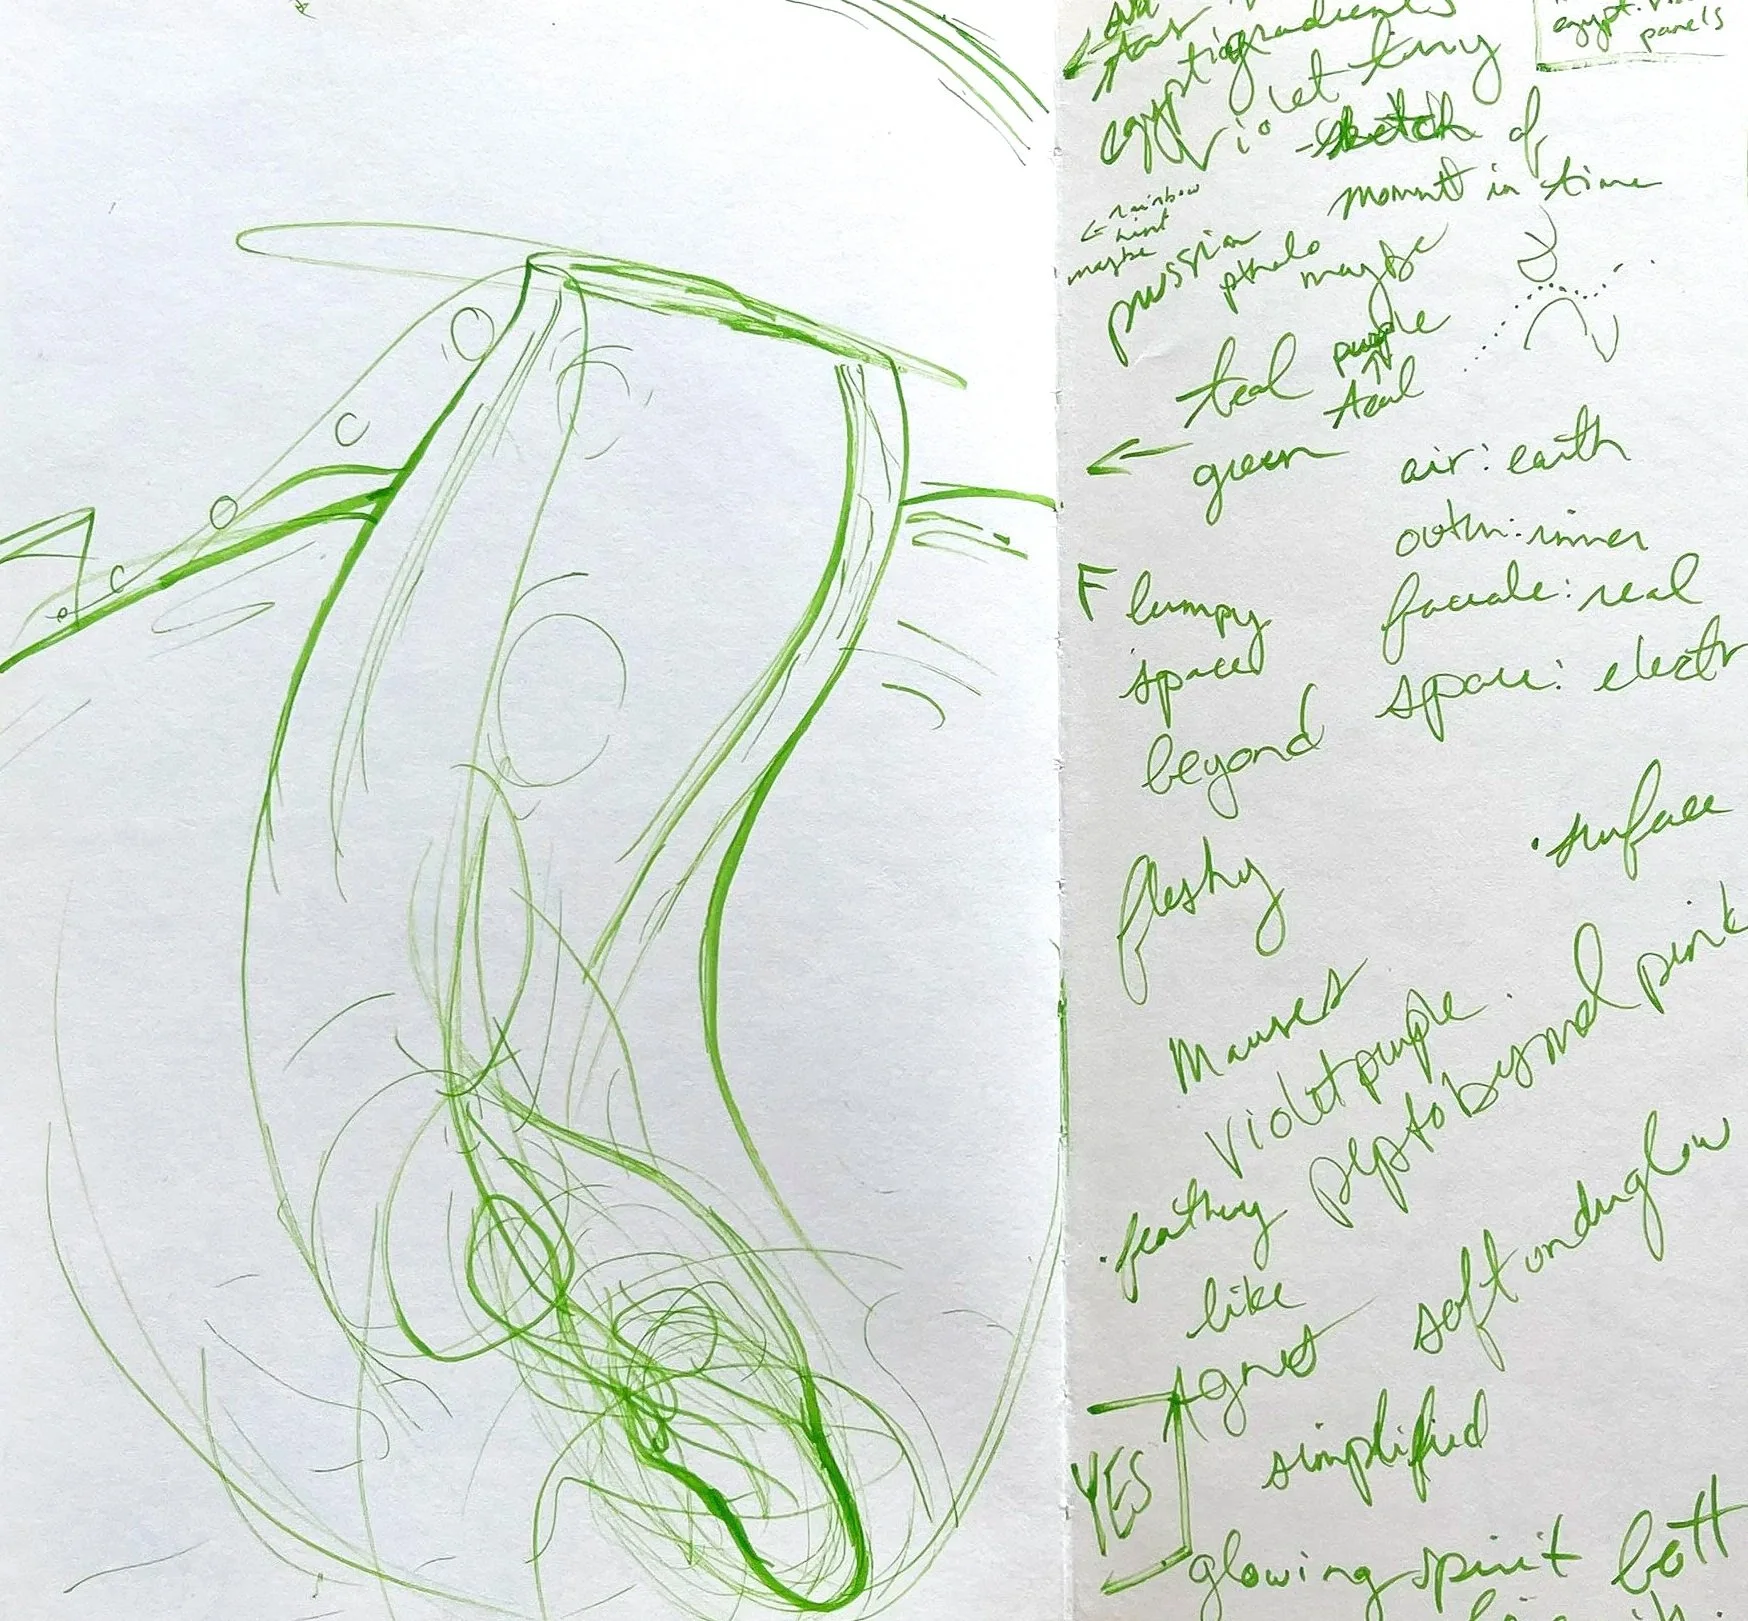 gradients
egypt. vio
panels
egyptio
violet tiny
-sketch of
moment in time
← rainbow
hint
maybe
prussian
pthalo
maybe
teal purple
teal
← green
air: earth
outer: inner
F lumpy
facade: real
space
space: electr
beyond
• surface
fleshy
Mauves
violet purple
peptobysmol pink
• feathery
like
soft underglow
Agnes
simplified
YES
glowing spirit bott